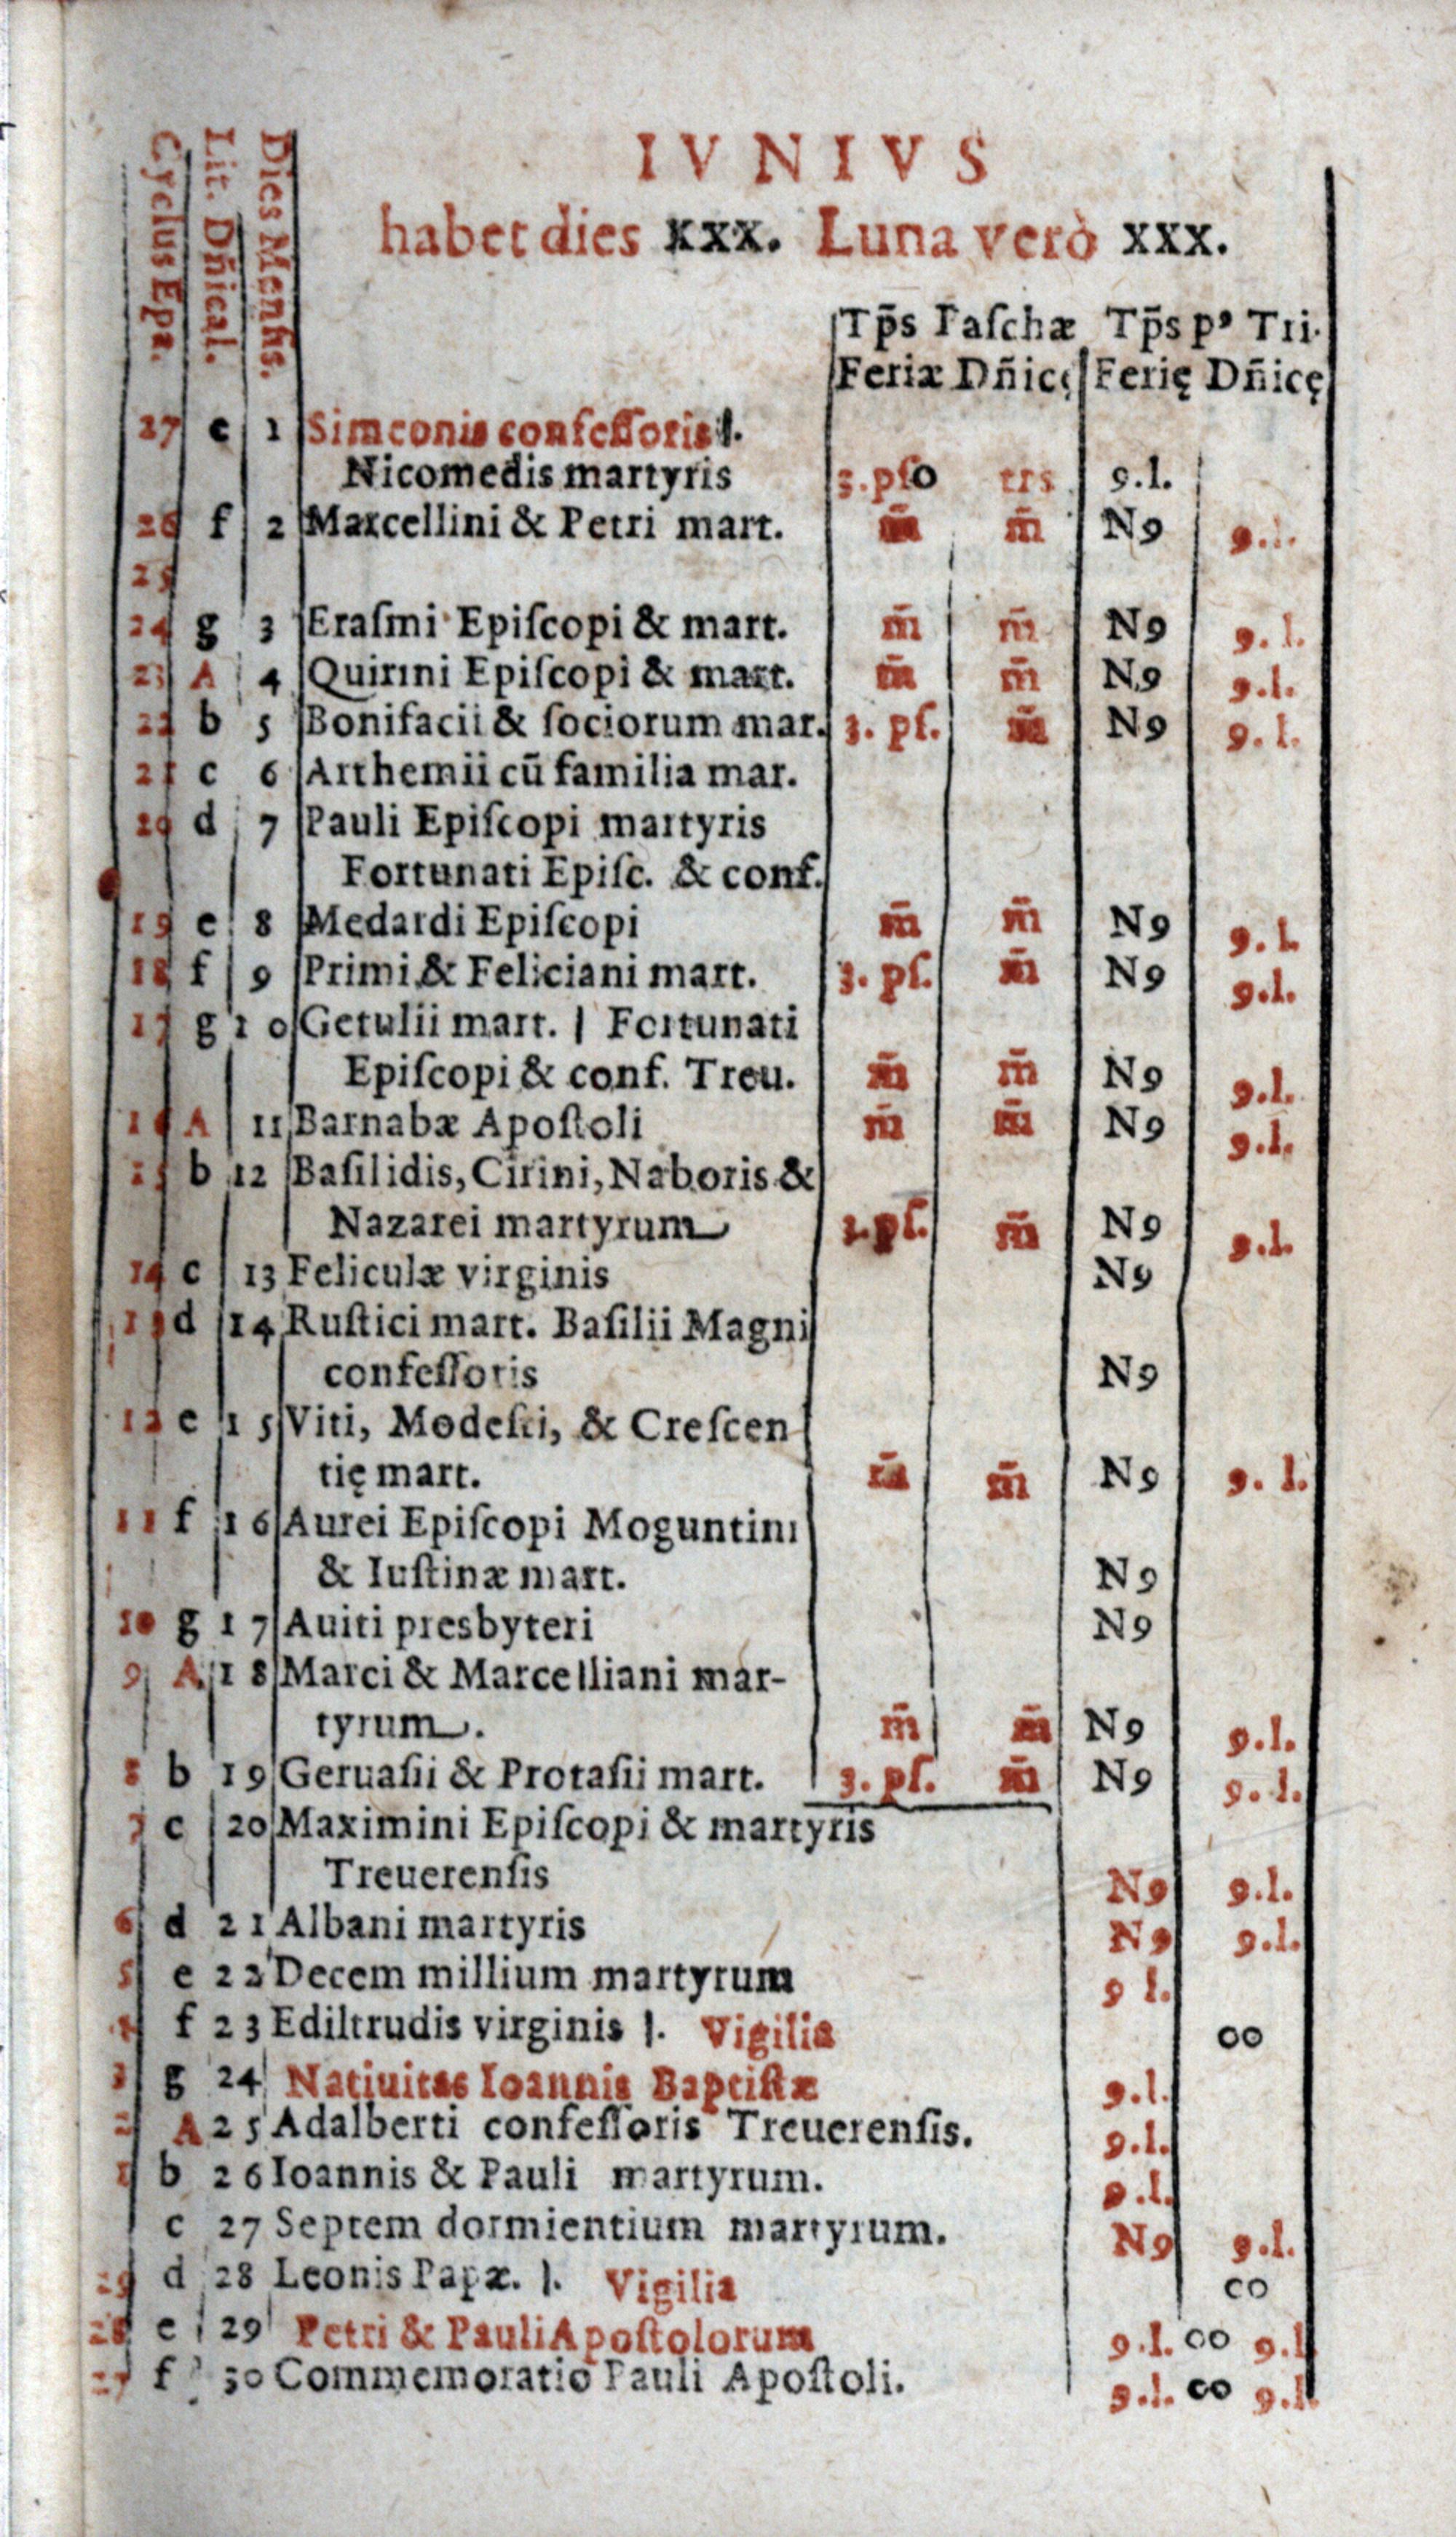 IVNIVS
habet dies xxx. Luna verò xxx.
Cyclus Epa.
Lit. Dñical.
Dies Mensis.
Tp̄s Paſchæ Tp̄s pꝰ Tri.
Feriæ Dñicę Ferię Dñicę
27 e 1 Simeonis confeſſoris |.
Nicomedis martyris 3.pſo trs 9.l.
26 f 2 Marcellini & Petri mart. m̄ m̄ N9 9.l.
25
24 g 3 Eraſmi Epiſcopi & mart. m̄ m̄ N9 9. l.
23 A 4 Quirini Epiſcopi & mart. m̄ m̄ N9 9.l.
22 b 5 Bonifacii & ſociorum mar. 3. pſ. m̄ N9 9. l.
21 c 6 Arthemii cū familia mar.
20 d 7 Pauli Epiſcopi martyris
Fortunati Epiſc. & conf.
19 e 8 Medardi Epiſcopi m̄ m̄ N9 9. l.
18 f 9 Primi & Feliciani mart. 3. pſ. m̄ N9 9.l.
17 g 10 Getulii mart. | Fortunati
Epiſcopi & conf. Treu. m̄ m̄ N9 9.l.
16 A 11 Barnabæ Apoſtoli m̄ m̄ N9 9.l.
15 b 12 Baſilidis, Cirini, Naboris &
Nazarei martyrum 3.pſ. m̄ N9 9.l.
14 c 13 Feliculæ virginis N9
13 d 14 Ruſtici mart. Baſilii Magni
confeſſoris N9
12 e 15 Viti, Modeſti, & Creſcen
tię mart. m̄ m̄ N9 9. l.
11 f 16 Aurei Epiſcopi Moguntini
& Iuſtinæ mart. N9
10 g 17 Auiti presbyteri N9
9 A 18 Marci & Marcelliani mar-
tyrum. m̄ m̄ N9 9.l.
8 b 19 Geruaſii & Protaſii mart. 3. pſ. m̄ N9 9. l.
7 c 20 Maximini Epiſcopi & martyris
Treuerenſis N9 9.l.
6 d 21 Albani martyris N9 9.l.
5 e 22 Decem millium martyrum 9 l.
4 f 23 Ediltrudis virginis |. Vigilia oo
3 g 24 Natiuitas Ioannis Baptiſtæ 9.l.
2 A 25 Adalberti confeſſoris Treuerenſis. 9.l.
1 b 26 Ioannis & Pauli martyrum. 9.l.
c 27 Septem dormientium martyrum. N9 9.l.
29 d 28 Leonis Papæ. |. Vigilia oo
28 e 29 Petri & Pauli Apoſtolorum 9.l. oo 9.l
27 f 30 Commemoratio Pauli Apoſtoli. 9.l. oo 9.l.